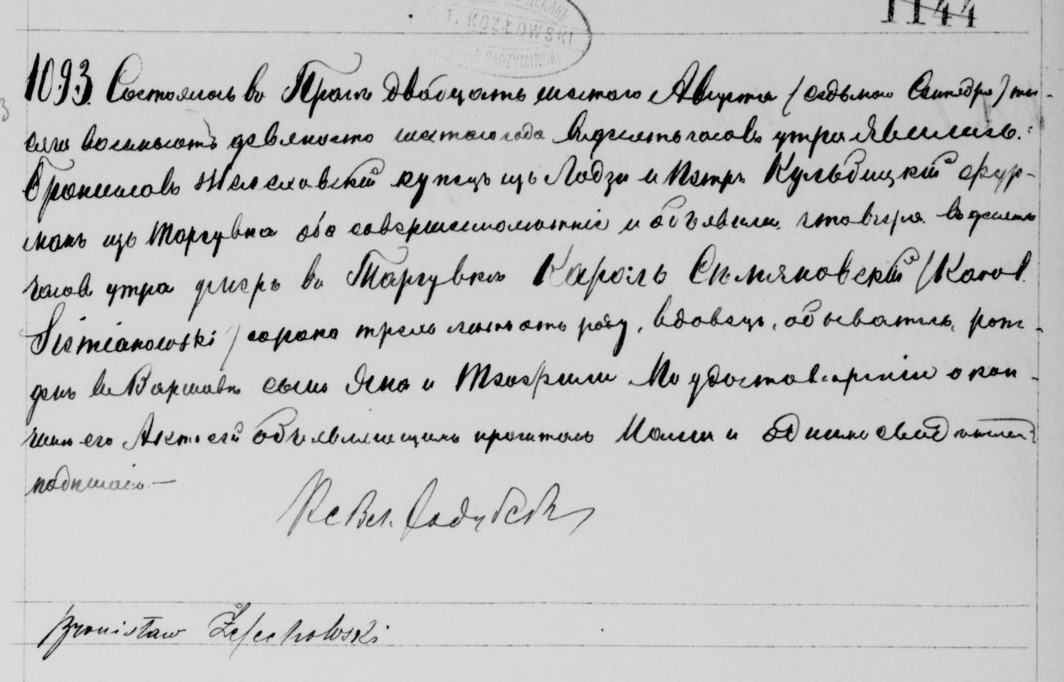 К. Т. KOZŁOWSKI
1144
1093. Состоялось въ Прагѣ двадцать шестаго Августа / седьмаго Сентября / ты-
сяча восемьсотъ девяносто шестаго года въ десять часовъ утра. Явились:
Брониславъ купецъ изъ Лодзи и Петръ Кульбицкій фур-
манъ изъ Таргувка оба совершеннолѣтніе и объявили, что вчера въ десять
часовъ утра умеръ въ Таргувкѣ Кароль Сѣмяновскій / Karol
Siemianowski / сорока трехъ лѣтъ отъ роду, вдовецъ, обыватель, рож-
денъ въ Варшавѣ сынъ Яна и Теофили. По удостовѣреніи о кон-
чинѣ его Актъ сей объявляющимъ прочитанъ Нами и однимъ свидѣтелемъ
подписанъ.—
Кс Вл.
Bronisław Żelechowski